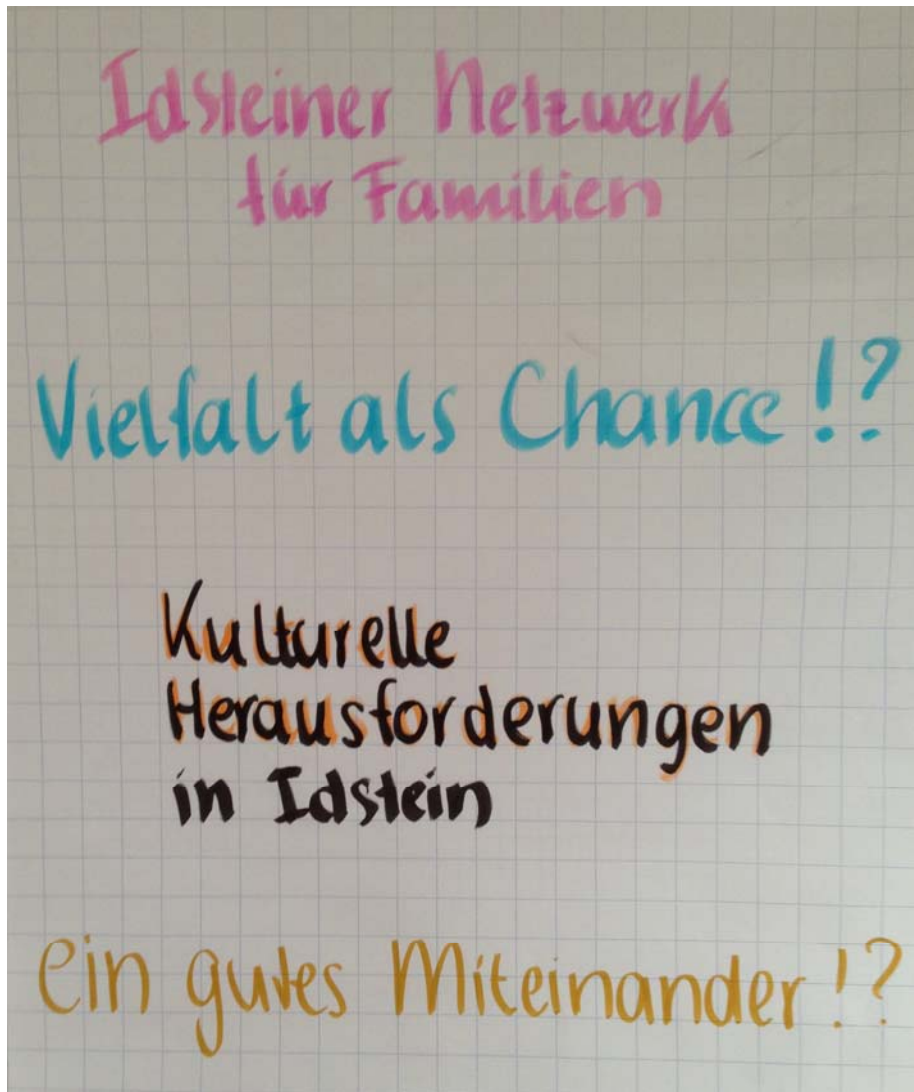 Idsteiner Netzwerk
für Familien
Vielfalt als Chance!?
Kulturelle
Herausforderungen
in Idstein
ein gutes Miteinander!?